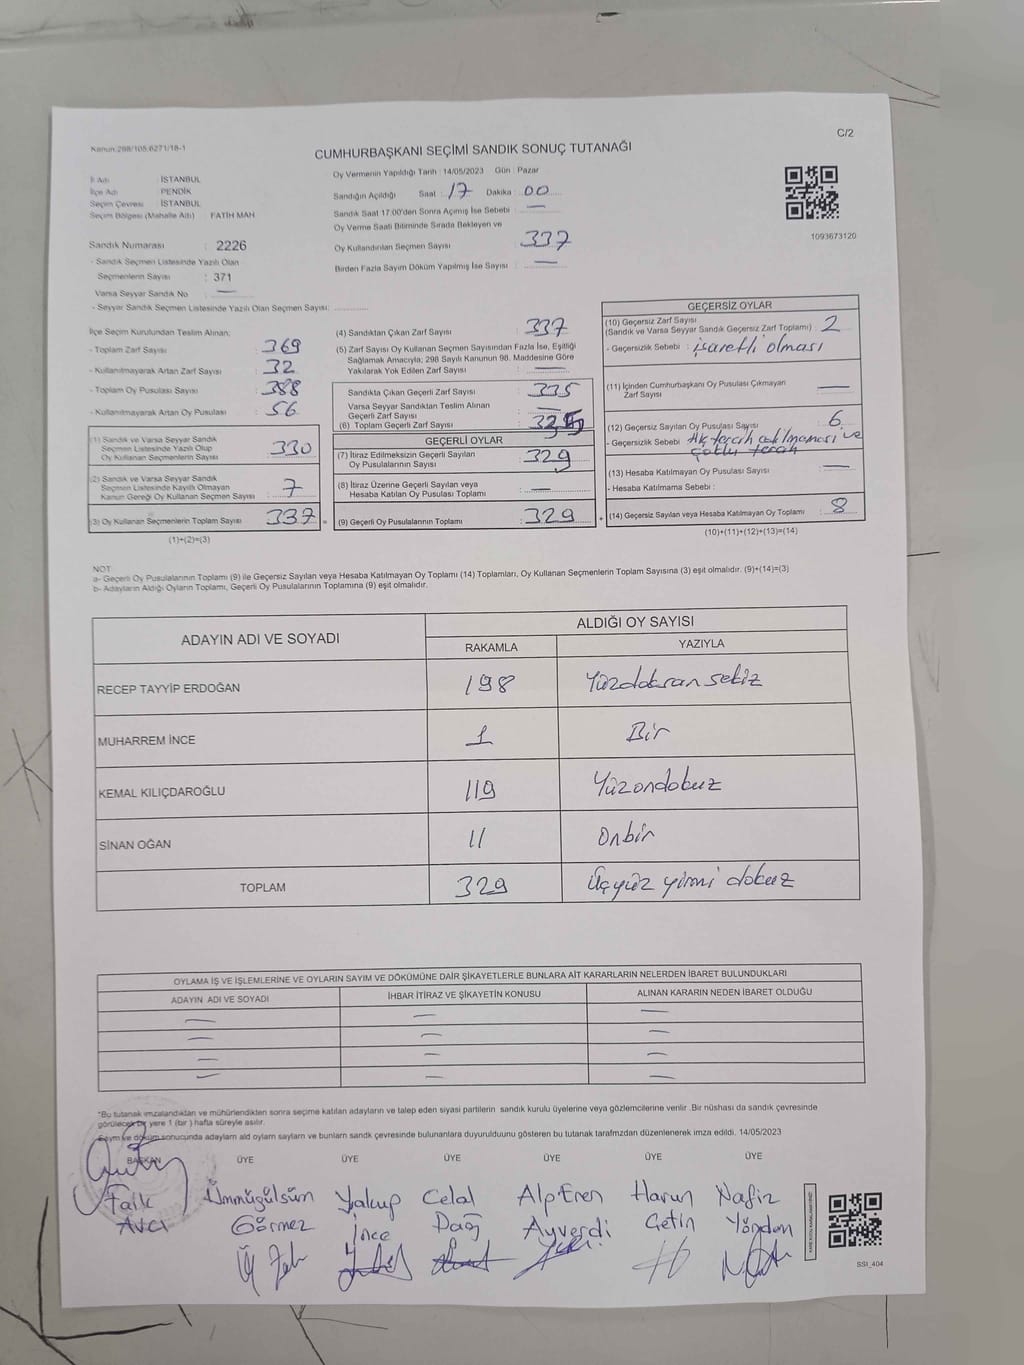 Kanun:298/105,6271/18-1
C/2
CUMHURBAŞKANI SEÇİMİ SANDIK SONUÇ TUTANAĞI
İl Adı : İSTANBUL
İlçe Adı : PENDİK
Seçim Çevresi : İSTANBUL
Seçim Bölgesi (Mahalle Adı) FATİH MAH
Sandık Numarası : 2226
- Sandık Seçmen Listesinde Yazılı Olan
Seçmenlerin Sayısı : 371
Varsa Seyyar Sandık No : —
- Seyyar Sandık Seçmen Listesinde Yazılı Olan Seçmen Sayısı:
Oy Vermenin Yapıldığı Tarih : 14/05/2023 Gün : Pazar
Sandığın Açıldığı Saat : 17 Dakika : 00
Sandık Saat 17.00'den Sonra Açımış İse Sebebi : —
Oy Verme Saati Bitiminde Sırada Bekleyen ve
Oy Kullandırılan Seçmen Sayısı : 337
Birden Fazla Sayım Döküm Yapılmış İse Sayısı : —
1093673120
İlçe Seçim Kurulundan Teslim Alınan;
- Toplam Zarf Sayısı : 369
- Kullanılmayarak Artan Zarf Sayısı : 32
- Toplam Oy Pusulası Sayısı : 388
- Kullanılmayarak Artan Oy Pusulası : 56
(1) Sandık ve Varsa Seyyar Sandık
Seçmen Listesinde Yazılı Olup
Oy Kullanan Seçmenlerin Sayısı : 330
(2) Sandık ve Varsa Seyyar Sandık
Seçmen Listesinde Kayıtlı Olmayan
Kanun Gereği Oy Kullanan Seçmen Sayısı : 7
(3) Oy Kullanan Seçmenlerin Toplam Sayısı : 337 =
(1)+(2)=(3)
(4) Sandıktan Çıkan Zarf Sayısı : 337
(5) Zarf Sayısı Oy Kullanan Seçmen Sayısından Fazla İse, Eşitliği
Sağlamak Amacıyla; 298 Sayılı Kanunun 98. Maddesine Göre
Yakılarak Yok Edilen Zarf Sayısı : —
Sandıkta Çıkan Geçerli Zarf Sayısı : 335
Varsa Seyyar Sandıktan Teslim Alınan
Geçerli Zarf Sayısı : —
(6) Toplam Geçerli Zarf Sayısı :
GEÇERLİ OYLAR
(7) İtiraz Edilmeksizin Geçerli Sayılan
Oy Pusulalarının Sayısı : 329
(8) İtiraz Üzerine Geçerli Sayılan veya
Hesaba Katılan Oy Pusulası Toplamı : —
(9) Geçerli Oy Pusulalarının Toplamı : 329 +
GEÇERSİZ OYLAR
(10) Geçersiz Zarf Sayısı
(Sandık ve Varsa Seyyar Sandık Geçersiz Zarf Toplamı) : 2
- Geçersizlik Sebebi : işaretli olması
(11) İçinden Cumhurbaşkanı Oy Pusulası Çıkmayan
Zarf Sayısı : —
(12) Geçersiz Sayılan Oy Pusulası Sayısı : 6
- Geçersizlik Sebebi : ve
(13) Hesaba Katılmayan Oy Pusulası Sayısı : —
- Hesaba Katılmama Sebebi :
(14) Geçersiz Sayılan veya Hesaba Katılmayan Oy Toplamı : 8
(10)+(11)+(12)+(13)=(14)
NOT:
a- Geçerli Oy Pusulalarının Toplamı (9) ile Geçersiz Sayılan veya Hesaba Katılmayan Oy Toplamı (14) Toplamları, Oy Kullanan Seçmenlerin Toplam Sayısına (3) eşit olmalıdır. (9)+(14)=(3)
b- Adayların Aldığı Oyların Toplamı, Geçerli Oy Pusulalarının Toplamına (9) eşit olmalıdır.
ADAYIN ADI VE SOYADI
ALDIĞI OY SAYISI
RAKAMLA YAZIYLA
RECEP TAYYİP ERDOĞAN 198 Yüzdoksan sekiz
MUHARREM İNCE 1 Bir
KEMAL KILIÇDAROĞLU 119 Yüzondokuz
SİNAN OĞAN 11 Onbir
TOPLAM 329 Üçyüz yirmi dokuz
OYLAMA İŞ VE İŞLEMLERİNE VE OYLARIN SAYIM VE DÖKÜMÜNE DAİR ŞİKAYETLERLE BUNLARA AİT KARARLARIN NELERDEN İBARET BULUNDUKLARI
ADAYIN ADI VE SOYADI İHBAR İTİRAZ VE ŞİKAYETİN KONUSU ALINAN KARARIN NEDEN İBARET OLDUĞU
— — —
— — —
— — —
— — —
*Bu tutanak imzalandıktan ve mühürlendikten sonra seçime katılan adayların ve talep eden siyasi partilerin sandık kurulu üyelerine veya gözlemcilerine verilir .Bir nüshası da sandık çevresinde
görülecek bir yere 1 (bir ) hafta süreyle asılır.
Sayım ve döküm sonucunda adayların ald oyların sayların ve bunların sandk çevresinde bulunanlara duyurulduunu gösteren bu tutanak tarafmzdan düzenlenerek imza edildi. 14/05/2023
BAŞKAN ÜYE ÜYE ÜYE ÜYE ÜYE ÜYE
Faik Ümmügülsün Yakup Celal AlpEren Harun Nafiz
Avcı Görmez İnce Dağ Ayverdi Çetin
SSI_404